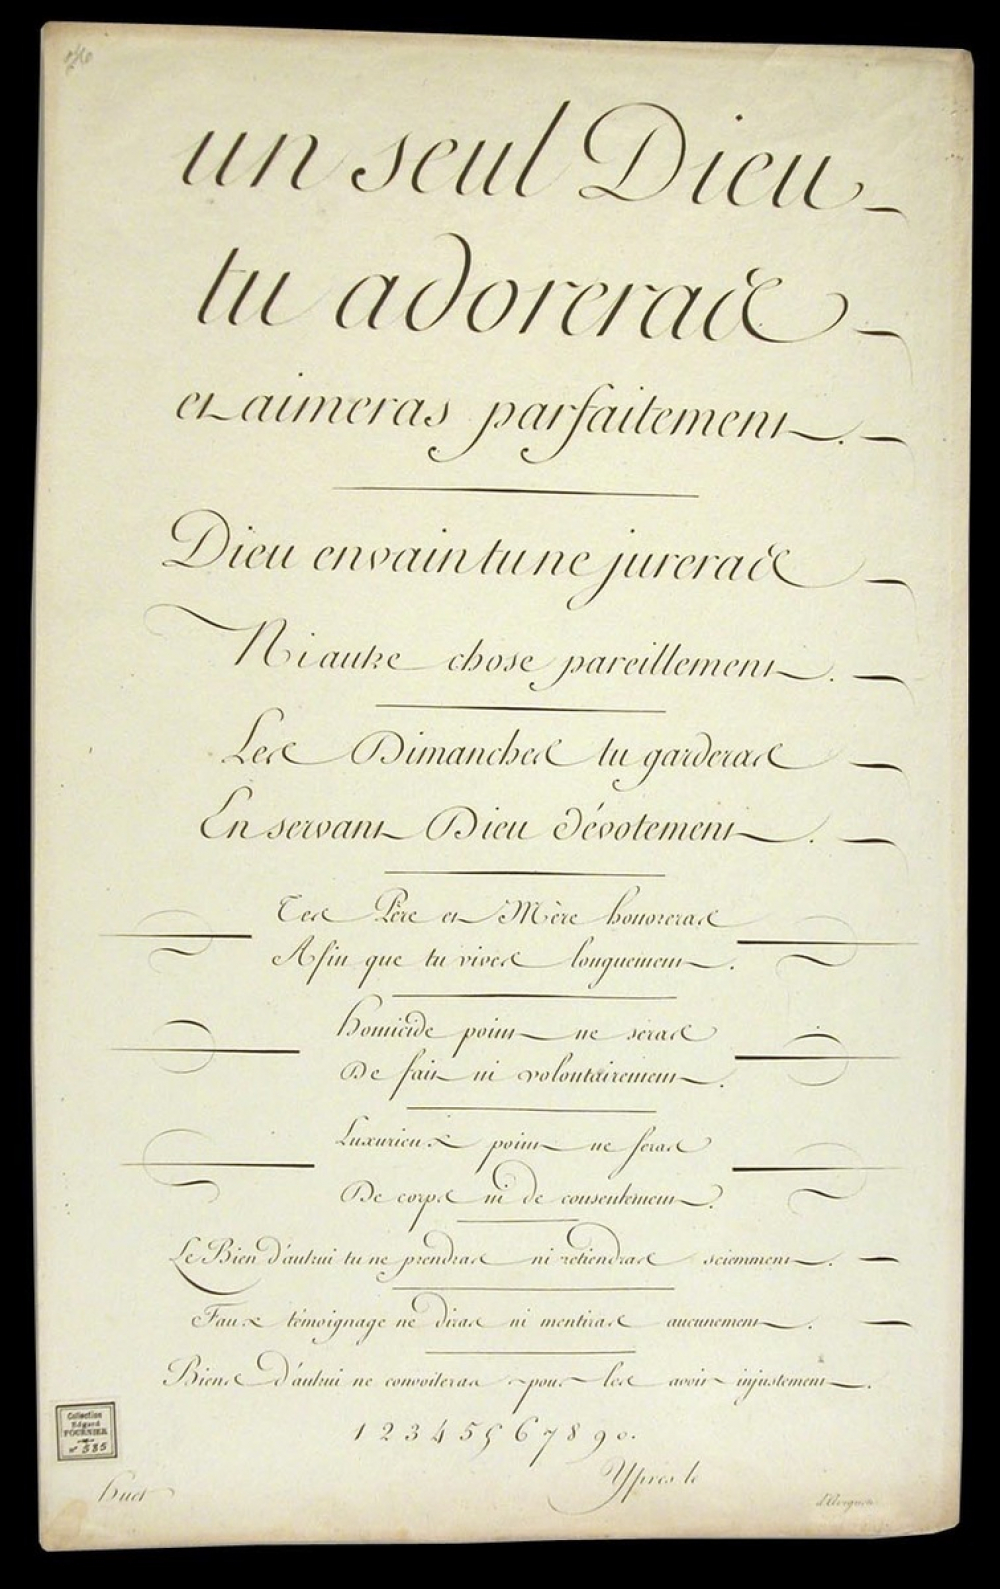 un seul Dieu
tu adoreras
et aimeras parfaitement.
Dieu en vain tu ne jureras
Ni autre chose pareillement.
Les Dimanches tu garderas
En servant Dieu dévotement.
Tes Père et Mère honoreras
Afin que tu vives longuement.
Homicide point ne seras
De fait ni volontairement.
Luxurieux point ne seras
De corps ni de consentement.
Le Bien d'autrui tu ne prendras ni retiendras sciemment.
Faux témoignage ne diras ni mentiras aucunement.
Biens d'autrui ne convoiteras pour les avoir injustement.
1 2 3 4 5 5 6 7 8 9 0.
Ypres le
Collection
Edgard
FOURNIER
n° 535
huet